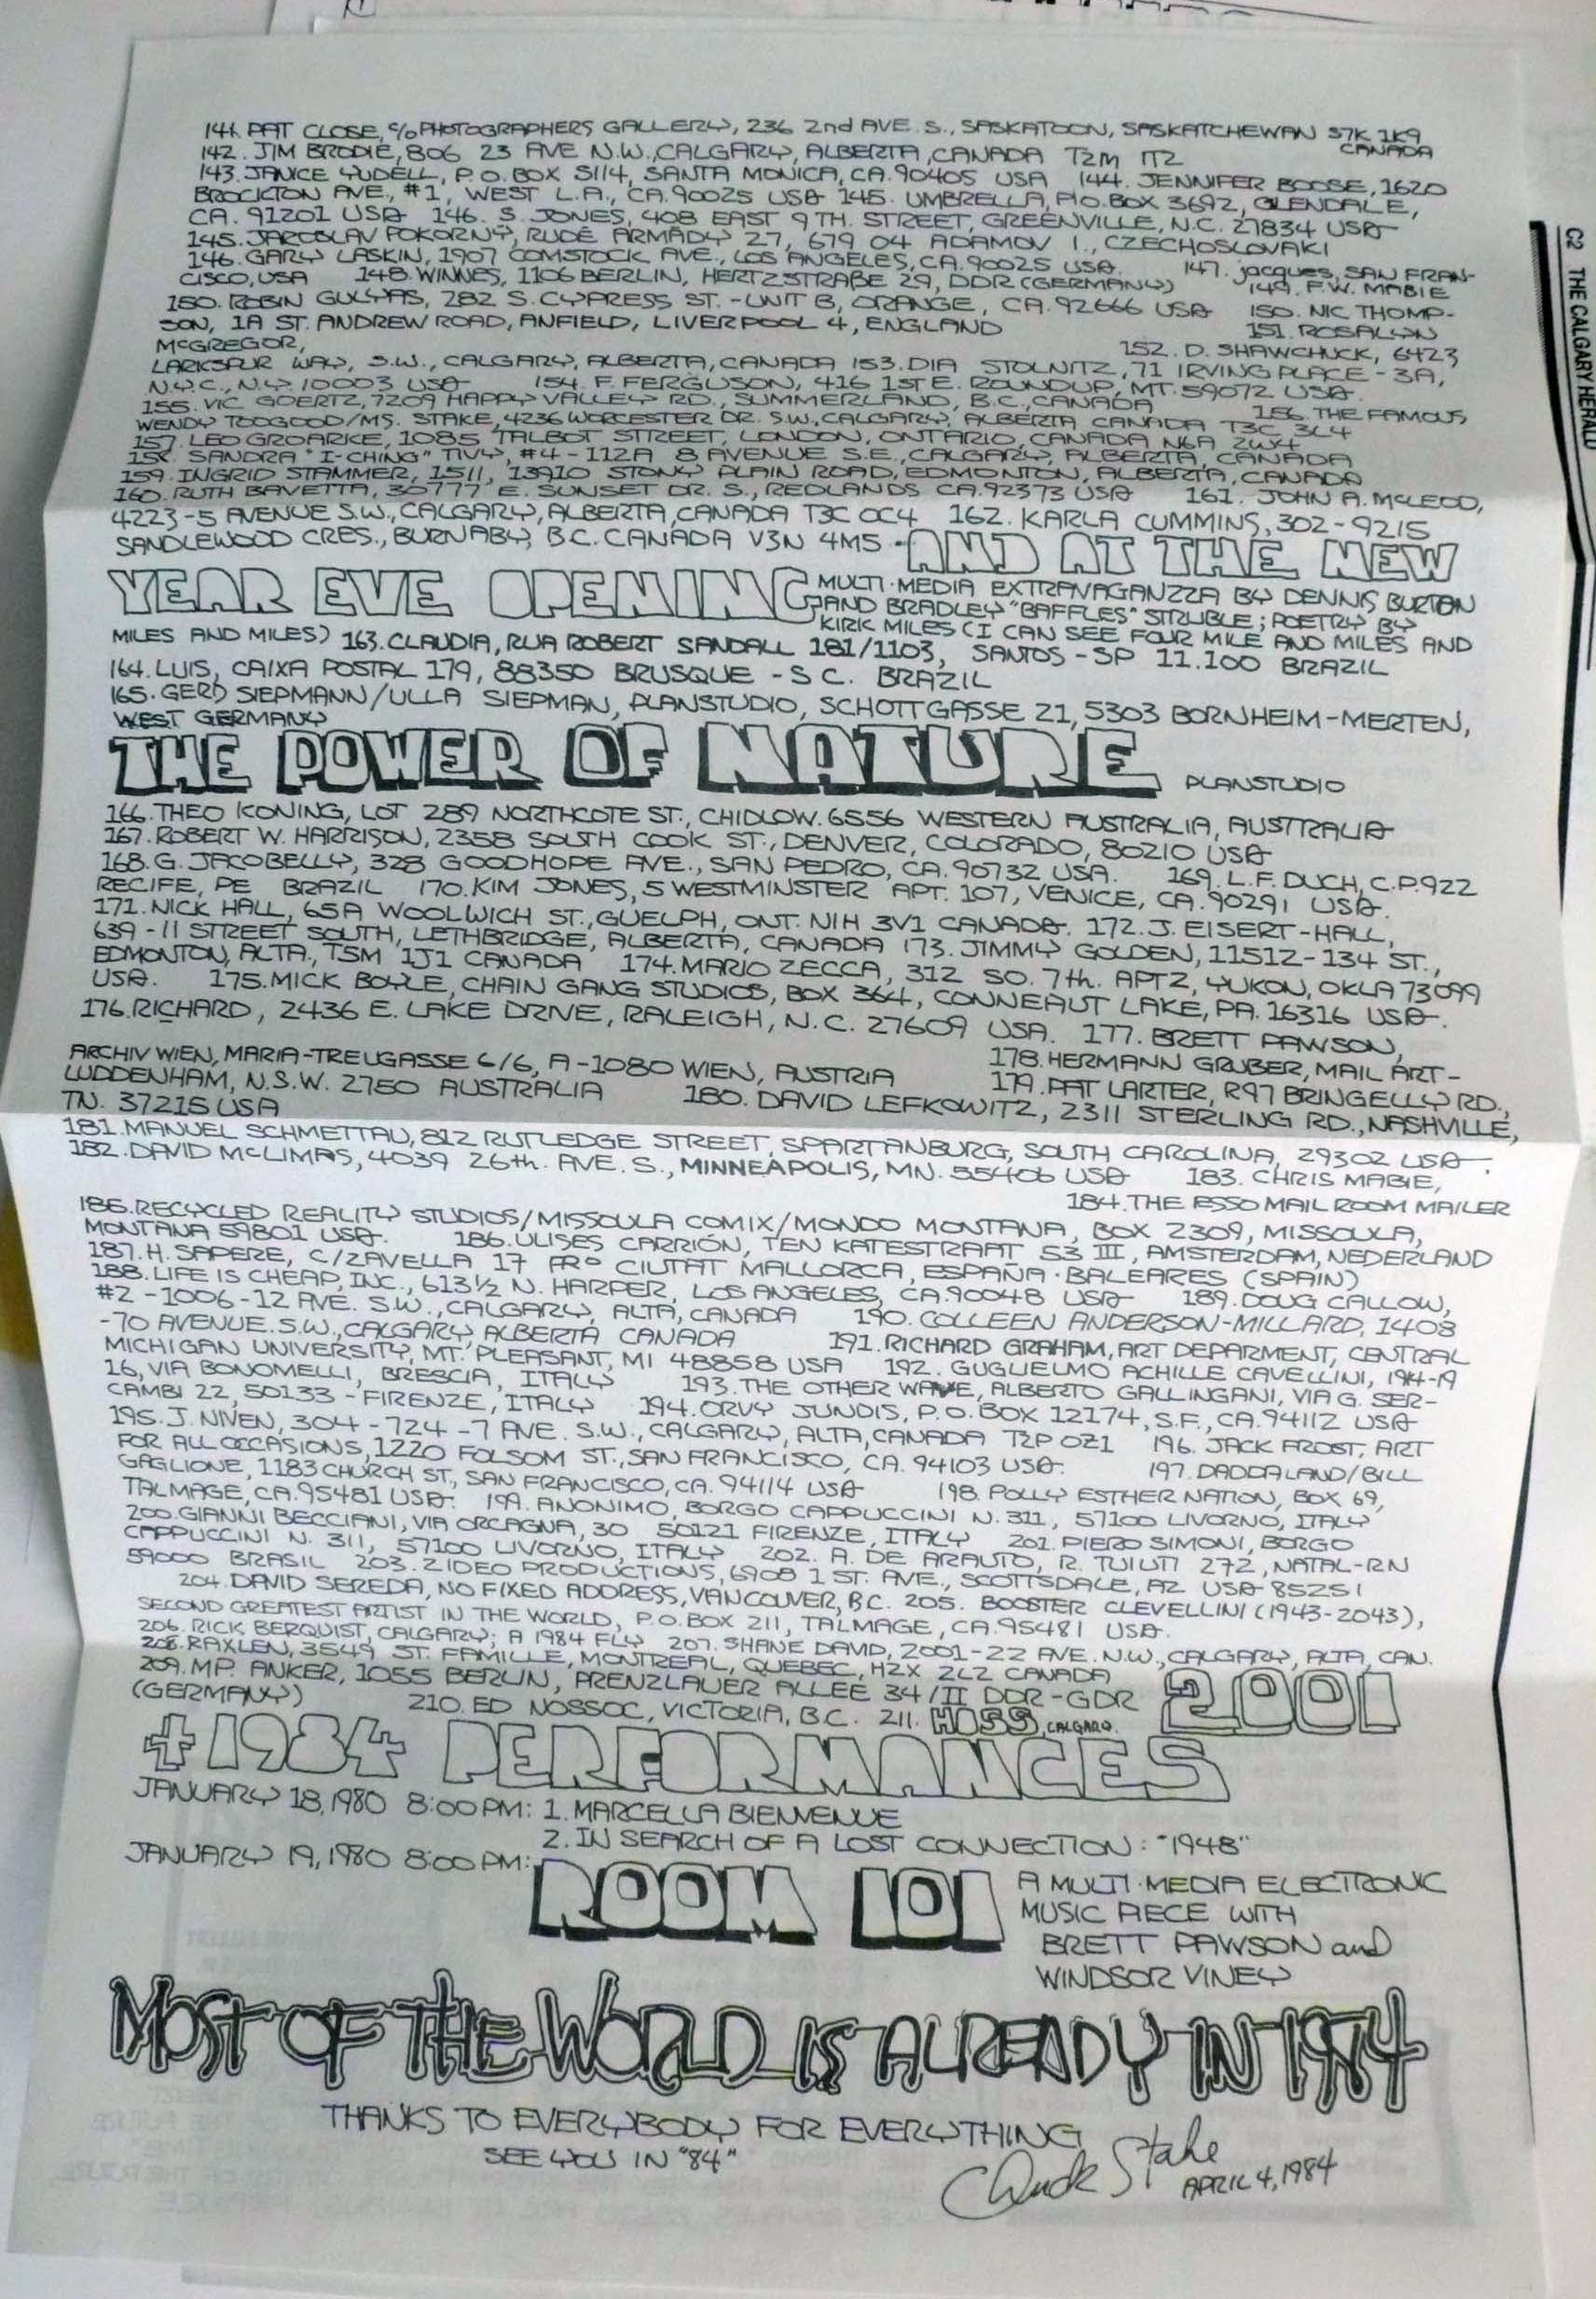 141. PAT CLOSE, c/o PHOTOGRAPHERS GALLERY, 236 2nd AVE. S., SASKATOON, SASKATCHEWAN S7K 1K9
CANADA
142. JIM BRODIE, 806 23 AVE N.W., CALGARY, ALBERTA, CANADA T2M 1T2
143. JANICE YUDELL, P.O. BOX 5114, SANTA MONICA, CA. 90405 USA 144. JENNIFER BOOSE, 1620
BROCKTON AVE., #1, WEST L.A., CA. 90025 USA 145. UMBRELLA, P.O. BOX 3692, GLENDALE,
CA. 91201 USA 146. S. JONES, 408 EAST 9TH. STREET, GREENVILLE, N.C. 27834 USA
145. JAROSLAV POKORNY, RUDÉ ARMÁDY 27, 679 04 ADAMOV 1., CZECHOSLOVAKI
146. GARY LASKIN, 1907 COMSTOCK AVE., LOS ANGELES, CA. 90025 USA. 147. jacques, SAN FRAN-
CISCO, USA 148. WINNES, 1106 BERLIN, HERTZSTRAßE 29, DDR (GERMANY) 149. F.W. MABIE
150. ROBIN GULYAS, 282 S. CYPRESS ST. - UNIT B, ORANGE, CA. 92666 USA 150. NIC THOMP-
SON, 1A ST. ANDREW ROAD, ANFIELD, LIVERPOOL 4, ENGLAND 151. ROSALYN
McGREGOR, 152. D. SHAWCHUCK, 6423
LARKSPUR WAY, S.W., CALGARY, ALBERTA, CANADA 153. DIA STOLNITZ, 71 IRVING PLACE - 3A,
N.Y.C., N.Y. 10003 USA 154. F. FERGUSON, 416 1ST E. ROUNDUP, MT. 59072 USA.
155. VIC GOERTZ, 7209 HAPPY VALLEY RD., SUMMERLAND, B.C., CANADA 156. THE FAMOUS,
WENDY TOOGOOD/MS. STAKE, 4236 WORCESTER DR. S.W., CALGARY, ALBERTA CANADA T3C 3L4
157. LEO GROARKE, 1085 TALBOT STREET, LONDON, ONTARIO, CANADA N6A 2W4
158. SANDRA "I-CHING" TIVY, #4 - 112A 8 AVENUE S.E., CALGARY, ALBERTA, CANADA
159. INGRID STAMMER, 1511, 13910 STONY PLAIN ROAD, EDMONTON, ALBERTA, CANADA
160. RUTH BAVETTA, 30777 E. SUNSET DR. S., REDLANDS CA. 92373 USA 161. JOHN A. McLEOD,
4223-5 AVENUE S.W., CALGARY, ALBERTA, CANADA T3C 0C4 162. KARLA CUMMINS, 302-9215
SANDLEWOOD CRES., BURNABY, B.C. CANADA V3N 4M5 • AND AT THE NEW
YEAR EVE OPENING MULTI-MEDIA EXTRAVAGANZZA BY DENNIS BURTON
AND BRADLEY "BAFFLES" STRUBLE; POETRY BY
KIRK MILES (I CAN SEE FOUR MILE AND MILES AND
MILES AND MILES) 163. CLAUDIA, RUA ROBERT SANDALL 181/1103, SANTOS - SP 11.100 BRAZIL
164. LUIS, CAIXA POSTAL 179, 88350 BRUSQUE - S C. BRAZIL
165. GERD SIEPMANN/ULLA SIEPMAN, PLANSTUDIO, SCHOTTGASSE 21, 5303 BORNHEIM-MERTEN,
WEST GERMANY
THE POWER OF NATURE PLANSTUDIO
166. THEO KONING, LOT 289 NORTHCOTE ST., CHIDLOW. 6556 WESTERN AUSTRALIA, AUSTRALIA
167. ROBERT W. HARRISON, 2358 SOUTH COOK ST., DENVER, COLORADO, 80210 USA
168. G. JACOBELLY, 328 GOODHOPE AVE., SAN PEDRO, CA. 90732 USA. 169. L.F. DUCH, C.P. 922
RECIFE, PE BRAZIL 170. KIM JONES, 5 WESTMINSTER APT. 107, VENICE, CA. 90291 USA.
171. NICK HALL, 65A WOOLWICH ST., GUELPH, ONT. N1H 3V1 CANADA. 172. J. EISERT-HALL,
639 - 11 STREET SOUTH, LETHBRIDGE, ALBERTA, CANADA 173. JIMMY GOLDEN, 11512-134 ST.,
EDMONTON, ALTA, T5M 1J1 CANADA 174. MARIO ZECCA, 312 SO. 7th. APT 2, YUKON, OKLA 73099
USA. 175. MICK BOYLE, CHAIN GANG STUDIOS, BOX 364, CONNEAUT LAKE, PA. 16316 USA.
176. RICHARD, 2436 E. LAKE DRIVE, RALEIGH, N.C. 27609 USA. 177. BRETT PAWSON,
178. HERMANN GRUBER, MAIL ART-
ARCHIV WIEN, MARIA-TREUGASSE 6/6, A-1080 WIEN, AUSTRIA 179. PAT LARTER, R97 BRINGELLY RD.,
LUDDENHAM, N.S.W. 2750 AUSTRALIA 180. DAVID LEFKOWITZ, 2311 STERLING RD., NASHVILLE,
TN. 37215 USA
181. MANUEL SCHMETTAU, 812 RUTLEDGE STREET, SPARTANBURG, SOUTH CAROLINA, 29302 USA.
182. DAVID McLIMAS, 4039 26th. AVE. S., MINNEAPOLIS, MN. 55406 USA 183. CHRIS MABIE,
184. THE ESSO MAIL ROOM MAILER
186. RECYCLED REALITY STUDIOS/MISSOULA COMIX/MONDO MONTANA, BOX 2309, MISSOULA,
MONTANA 59801 USA. 186. ULISES CARRIÓN, TEN KATESTRAAT 53 III, AMSTERDAM, NEDERLAND
187. H. SAPERE, C/ZAVELLA 17 PRO CIUTAT MALLORCA, ESPAÑA • BALEARES (SPAIN)
188. LIFE IS CHEAP, INC., 613½ N. HARPER, LOS ANGELES, CA. 90048 USA 189. DOUG CALLOW,
#2 -1006-12 AVE. S.W., CALGARY, ALTA, CANADA 190. COLLEEN ANDERSON-MILLARD, 1408
-70 AVENUE. S.W., CALGARY, ALBERTA CANADA 191. RICHARD GRAHAM, ART DEPARMENT, CENTRAL
MICHIGAN UNIVERSITY, MT. PLEASANT, MI 48858 USA 192. GUGLIELMO ACHILLE CAVELLINI, 1914-19
16, VIA BONOMELLI, BRESCIA, ITALY 193. THE OTHER WAVE, ALBERTO GALLINGANI, VIA G. SER-
CAMBI 22, 50133 - FIRENZE, ITALY 194. ORVY JUNDIS, P.O. BOX 12174, S.F., CA. 94112 USA
195. J. NIVEN, 304 - 724 - 7 AVE. S.W., CALGARY, ALTA, CANADA T2P 0Z1 196. JACK FROST, ART
FOR ALL OCCASIONS, 1220 FOLSOM ST., SAN FRANCISCO, CA. 94103 USA. 197. DADDALAND/BILL
GAGLIONE, 1183 CHURCH ST., SAN FRANCISCO, CA. 94114 USA 198. POLLY ESTHER NATION, BOX 69,
TALMAGE, CA. 95481 USA. 199. ANONIMO, BORGO CAPPUCCINI N. 311, 57100 LIVORNO, ITALY
200. GIANNI BECCIANI, VIA ORCAGNA, 30 50121 FIRENZE, ITALY 201. PIERO SIMONI, BORGO
CAPPUCCINI N. 311, 57100 LIVORNO, ITALY 202. A. DE ARAUTO, R. TUIUTI 272, NATAL-RN
59000 BRASIL 203. ZIDEO PRODUCTIONS, 6908 1 ST. AVE., SCOTTSDALE, AZ USA 85251
204. DAVID SEREDA, NO FIXED ADDRESS, VANCOUVER, B.C. 205. BOOSTER CLEVELLINI (1943-2043),
SECOND GREATEST ARTIST IN THE WORLD, P.O. BOX 211, TALMAGE, CA. 95481 USA.
206. RICK BERQUIST, CALGARY; A 1984 FLY 207. SHANE DAVID, 2001-22 AVE. N.W., CALGARY, ALTA, CAN.
208. RAXLEN, 3549 ST. FAMILLE, MONTREAL, QUEBEC, H2X 2L2 CANADA
209. MP. ANKER, 1055 BERLIN, PRENZLAUER ALLEE 34/II DDR-GDR
(GERMANY) 210. ED NOSSOC, VICTORIA, B.C. 211. HOSS, CALGARY. 2001
+ 1984 PERFORMANCES
JANUARY 18, 1980 8:00 PM: 1. MARCELLA BIENVENUE
2. IN SEARCH OF A LOST CONNECTION: "1948"
JANUARY 19, 1980 8:00 PM: ROOM 101 A MULTI-MEDIA ELECTRONIC
MUSIC PIECE WITH
BRETT PAWSON and
WINDSOR VINEY
MOST OF THE WORLD IS ALREADY IN 1984
THANKS TO EVERYBODY FOR EVERYTHING
SEE YOU IN "84"
Chuck Stake
APRIL 4, 1984
C2 THE CALGARY HERALD